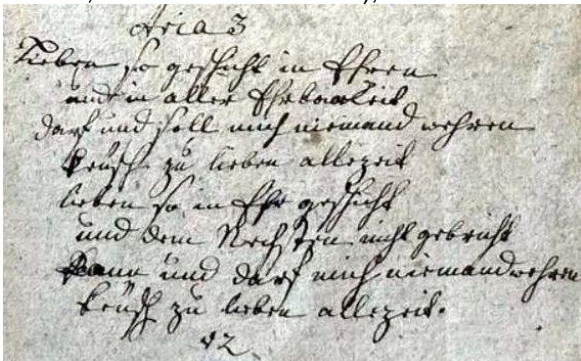 Aria 3
Lieben so geschicht in Ehren
und in aller Ehrbarkeit
darf und soll mich niemand wehren
keusch zu lieben allezeit
lieben so in Ehr geschicht
und dem Nechsten nicht gebricht
kann und darf mich niemand wehren
keusch zu lieben allezeit.